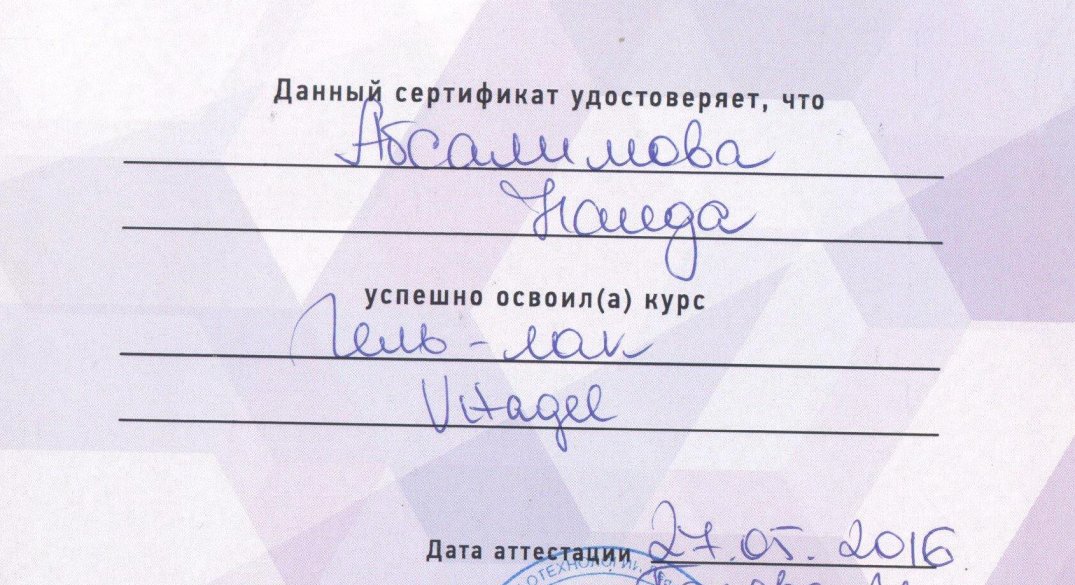 Данный сертификат удостоверяет, что
Абсалимова
Наида
успешно освоил(а) курс
Гель-лак
Vitagel
Дата аттестации 27.05.2016